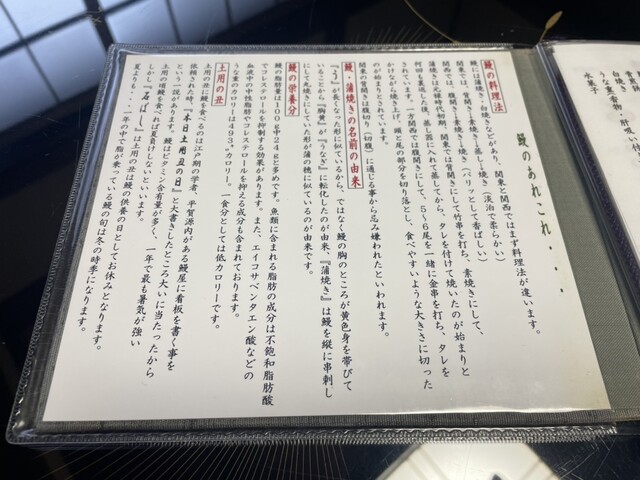 鰻のあれこれ・・・
鰻の料理法
鰻には蒲焼き・白焼きなどがあり、関東と関西ではまず料理法が違います。
関東では、背開き→素焼き→蒸し→焼き（淡泊で柔らかい）
関西では、腹開き→素焼き→焼き（パリッとして香ばしい）
蒲焼きは元禄時代初期、関東では背開きにして竹串を打ち、素焼きにして、
何回も裏返した後、蒸し器に入れて蒸してから、タレを付けて焼いたのが始まりと
されています。一方関西では腹開きにして、5〜6尾を一緒に金串を打ち、タレを
かけながら焼き上げ、頭と尾の部分を切り落とし、食べやすいような大きさに切った
のが始まりとされています。
関東の背開きは腹切り（切腹）に通じる事から忌み嫌われたといわれます。
鰻・蒲焼きの名前の由来
『う』が長くなった形に似ているから、ではなく鰻の胸のところが黄色身を帯びて
いることから『胸黄』が『うなぎ』に転化したのが由来。『蒲焼き』は鰻を縦に串刺し
にして丸焼きにしていた形が蒲の穂に似ているのが由来です。
鰻の栄養分
鰻の脂肪量は100g中24gと多めです。魚類に含まれる脂肪の成分は不飽和脂肪酸
でコレステロールを抑制する効果があります。また、エイコサペンタエン酸などの
血液中の中性脂肪やコレステロールを抑える成分も含まれております。
うな重のカロリーは493㌔カロリー。一食分としては低カロリーです。
土用の丑
土用の丑に鰻を食べるのは江戸期の学者、平賀源内がある鰻屋に看板を書く事を
依頼された時、『本日土用丑の日』と大書きしたところ大いに当たったから
という一説があります。鰻はビタミン含有量が多く、一年で最も暑気が強い
土用の頃鰻を食べれば夏負けしないといいます。
しかし『石ばし』は土用の丑は鰻の供養の日としてお休みとなります。
夏よりも・・・一年の中で脂が乗っている鰻の旬は冬の時季になります。
水菓子